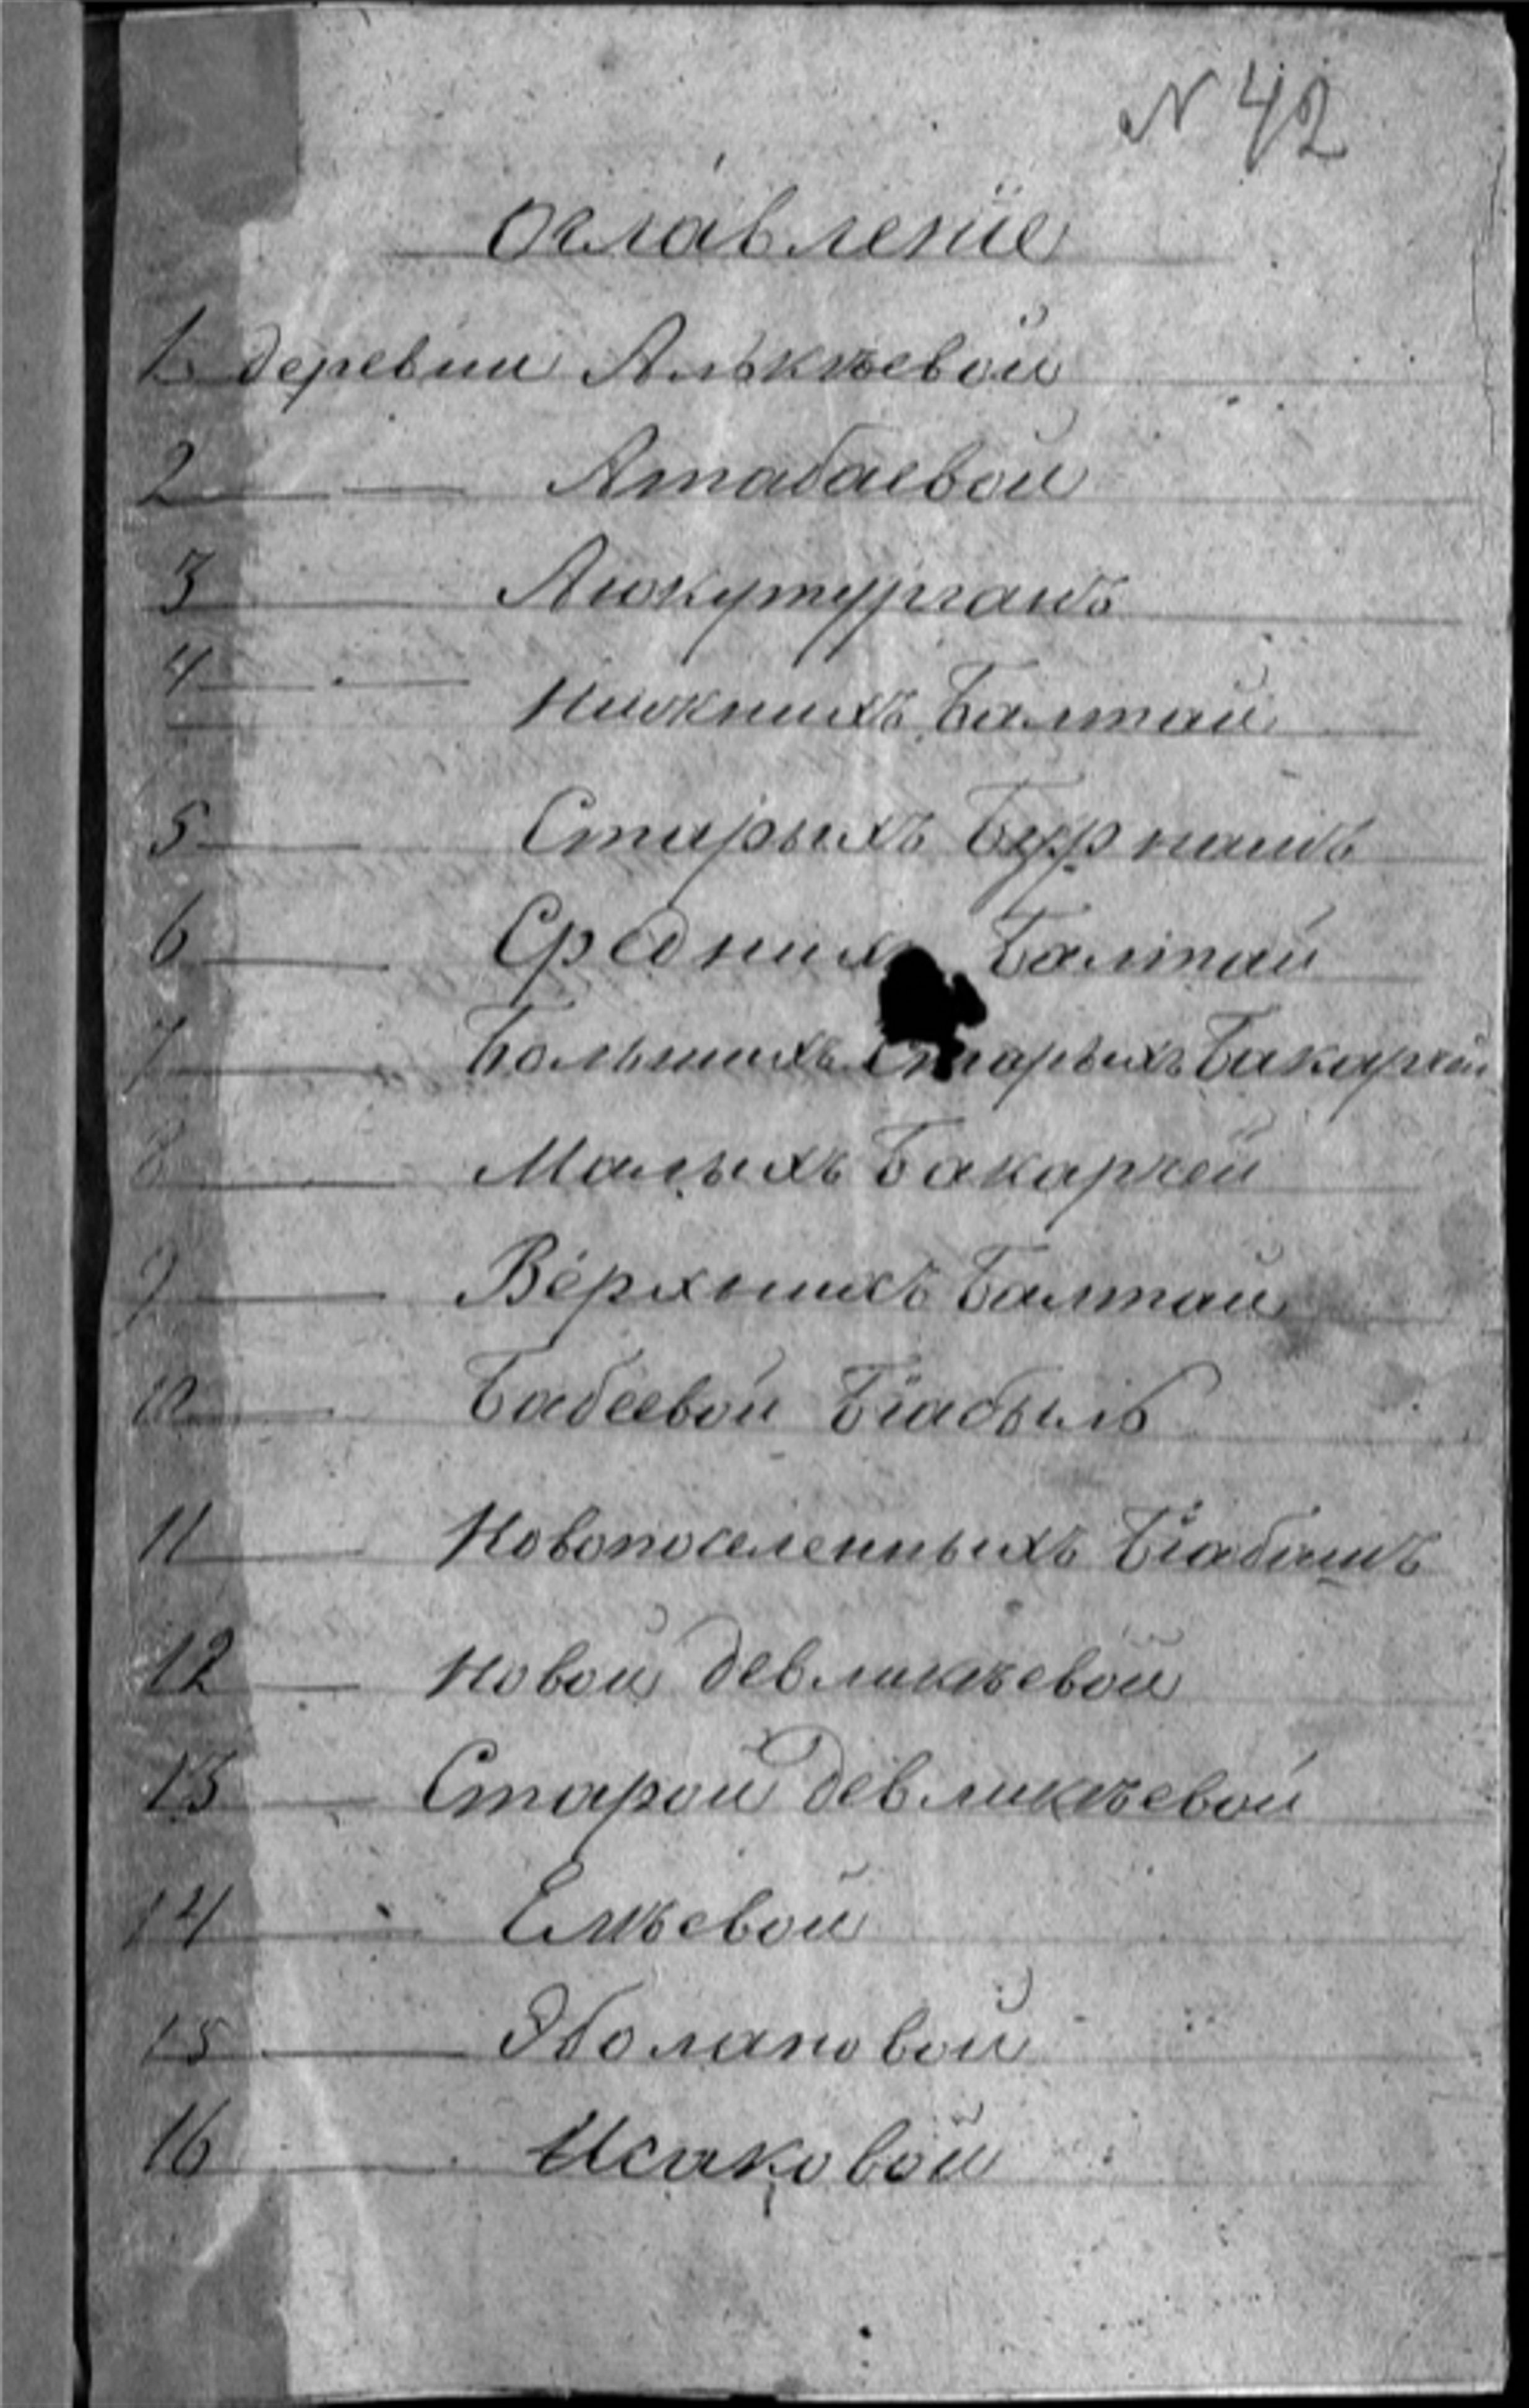 N 42
Оглавленіе
1 деревни Алькѣевой
2 Атабаевой
3 Аюкутурганъ
4 Нижнихъ Балтай
5 Старыхъ Бурнашъ
6 Среднихъ Балтай
7 Большихъ Старыхъ Бакарчей
8 Малыхъ Бакарчей
9 Верхнихъ Балтай
10 Бабеевой Біабышъ
11 Новопоселенныхъ Біабашъ
12 Новой Девликѣевой
13 Старой Девликѣевой
14 Елкѣевой
15 Эболаковой
16 Исаковой